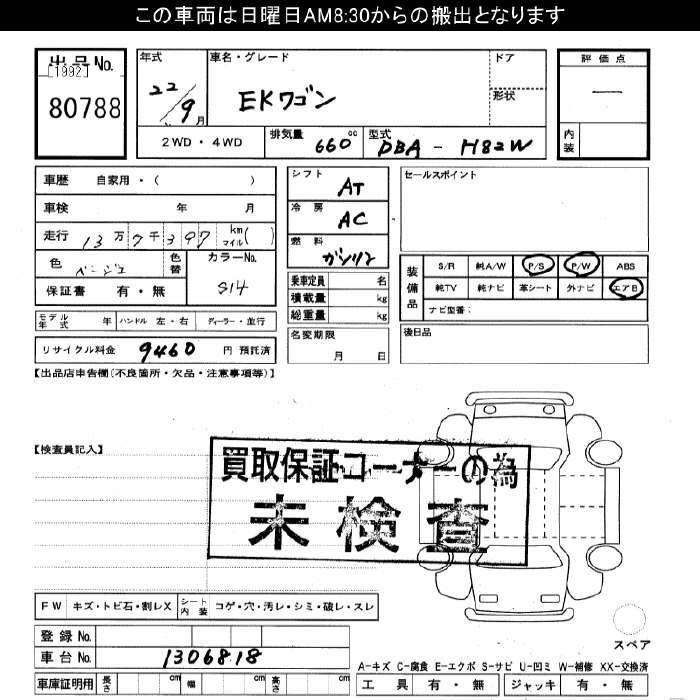 この車両は日曜日AM8:30からの搬出となります
出品No.
[1992]
80788
年式 22/9月
車名・グレード
EKワゴン
ドア
形状
評価点
一
内装
2WD・4WD
排気量 660 cc
型式 DBA - H82W
車歴 自家用・(
車検 年 月
走行 13万7千397 km マイル( )
色 ベージュ 色替
カラーNo. S14
保証書 有・無
シフト AT
冷房 AC
燃料 ガソリン
乗車定員 名
積載量 kg
総重量 kg
セールスポイント
装備品
S/R 純A/W P/S P/W ABS
純TV 純ナビ 革シート 外ナビ エアB
ナビ型番:
モデル年式 年 ハンドル 左・右 ディーラー・並行
名変期限
月 日
後日品
リサイクル料金 9460 円 預託済
【出品店申告欄(不良箇所・欠品・注意事項等)】
【検査員記入】
買取保証コーナーの為
未検査
FW キズ・トビ石・割レX シート内装 コゲ・穴・汚レ・シミ・破レ・スレ
スペア
登録No.
車台No. 1306818
A-キズ C-腐食 E-エクボ S-サビ U-凹ミ W-補修 XX-交換済
車庫証明用 長さ cm 幅 cm 高さ cm
工具 有・無 ジャッキ 有・無